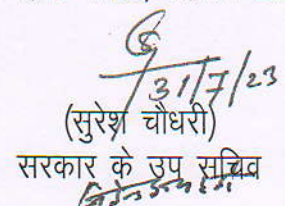 31/7/23
(सुरेश चौधरी)
सरकार के उप सचिव